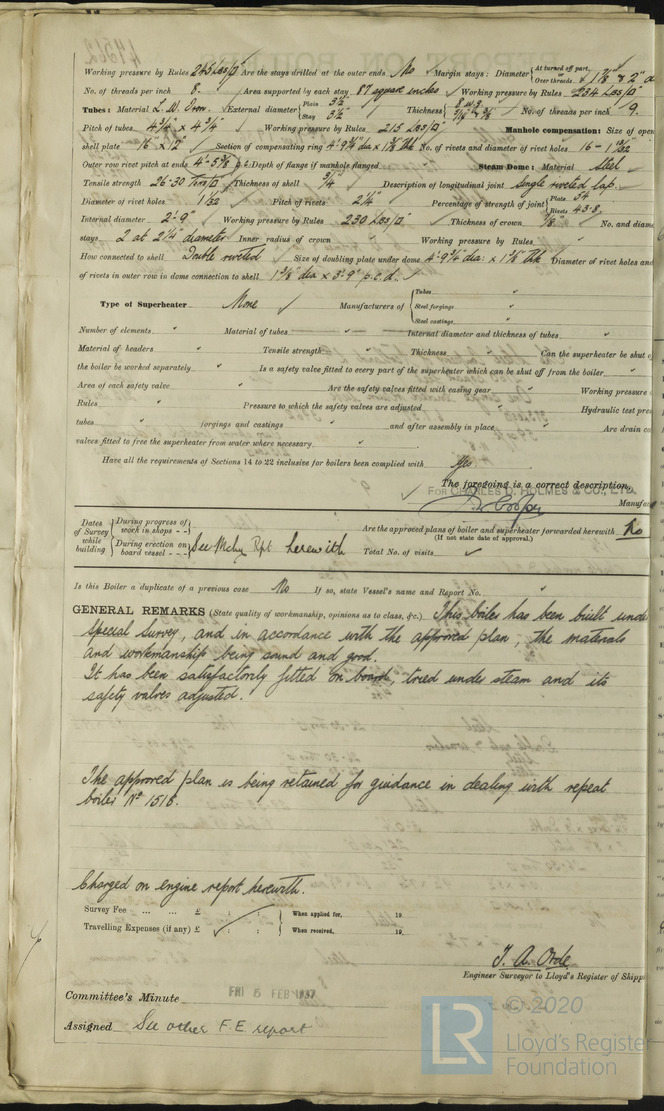 Working pressure by Rules 245 Lbs/□" Are the stays drilled at the outer ends No Margin stays: Diameter { At turned off part, Over threads 1 7/8" & 2"
No. of threads per inch 8. Area supported by each stay 87 square inches Working pressure by Rules 234 Lbs/□"
Tubes: Material L. W. Iron. External diameter { Plain 3½" Stay 3½" Thickness { 8 w.g. No. of threads per inch 9.
Pitch of tubes 4¾" x 4¾" Working pressure by Rules 215 Lbs/□" Manhole compensation: Size of open
shell plate 16" x 12" Section of compensating ring No. of rivets and diameter of rivet holes 16 - 1 11/32
Outer row rivet pitch at ends Depth of flange if manhole flanged Steam Dome: Material Steel
Tensile strength 26-30 Tons/□" Thickness of shell ¾" Description of longitudinal joint single riveted lap.
Diameter of rivet holes 1 1/32 Pitch of rivets 2¼" Percentage of strength of joint { Plate 54 Rivets 43.8
Internal diameter 2'-9" Working pressure by Rules 230 Lbs/□" Thickness of crown 7/8" No. and diame
stays 2 at 2¼" diameter Inner radius of crown " Working pressure by Rules "
How connected to shell Double riveted Size of doubling plate under dome 4'-9¾" dia: x 1⅛" thk Diameter of rivet holes and
of rivets in outer row in dome connection to shell 1⅜" dia x 3'-9" p.c.d.
Type of Superheater None Manufacturers of { Tubes "
Steel forgings "
Steel castings "
Number of elements " Material of tubes " Internal diameter and thickness of tubes "
Material of headers " Tensile strength " Thickness " Can the superheater be shut of
the boiler be worked separately " Is a safety valve fitted to every part of the superheater which can be shut off from the boiler "
Area of each safety valve " Are the safety valves fitted with easing gear " Working pressure
Rules " Pressure to which the safety valves are adjusted " Hydraulic test pres
tubes " forgings and castings " and after assembly in place " Are drain co
valves fitted to free the superheater from water where necessary "
Have all the requirements of Sections 14 to 22 inclusive for boilers been complied with Yes
The foregoing is a correct description,
FOR CHARLES D. HOLMES & CO., LTD.
Cooper Manufac
Dates of Survey while building { During progress of work in shops - - Are the approved plans of boiler and superheater forwarded herewith No
(If not state date of approval.)
During erection on board vessel - - - See Mchy Rpt herewith Total No. of visits
Is this Boiler a duplicate of a previous case No If so, state Vessel's name and Report No. "
GENERAL REMARKS (State quality of workmanship, opinions as to class, &c.) This boiler has been built unde
special survey, and in accordance with the approved plan, the materials
and workmanship being sound and good.
It has been satisfactorily fitted on board, tried under steam and its
safety valves adjusted.
The approved plan is being retained for guidance in dealing with repeat
boiler Nº 1516.
Charged on engine report herewith.
Survey Fee ... ... £ : : } When applied for, 19
Travelling Expenses (if any) £ : : } When received, 19
T. A. Orde
Engineer Surveyor to Lloyd's Register of Shipp
Committee's Minute FRI 5 FEB 1937
Assigned See other F.E report
LR © 2020
Lloyd's Register
Foundation